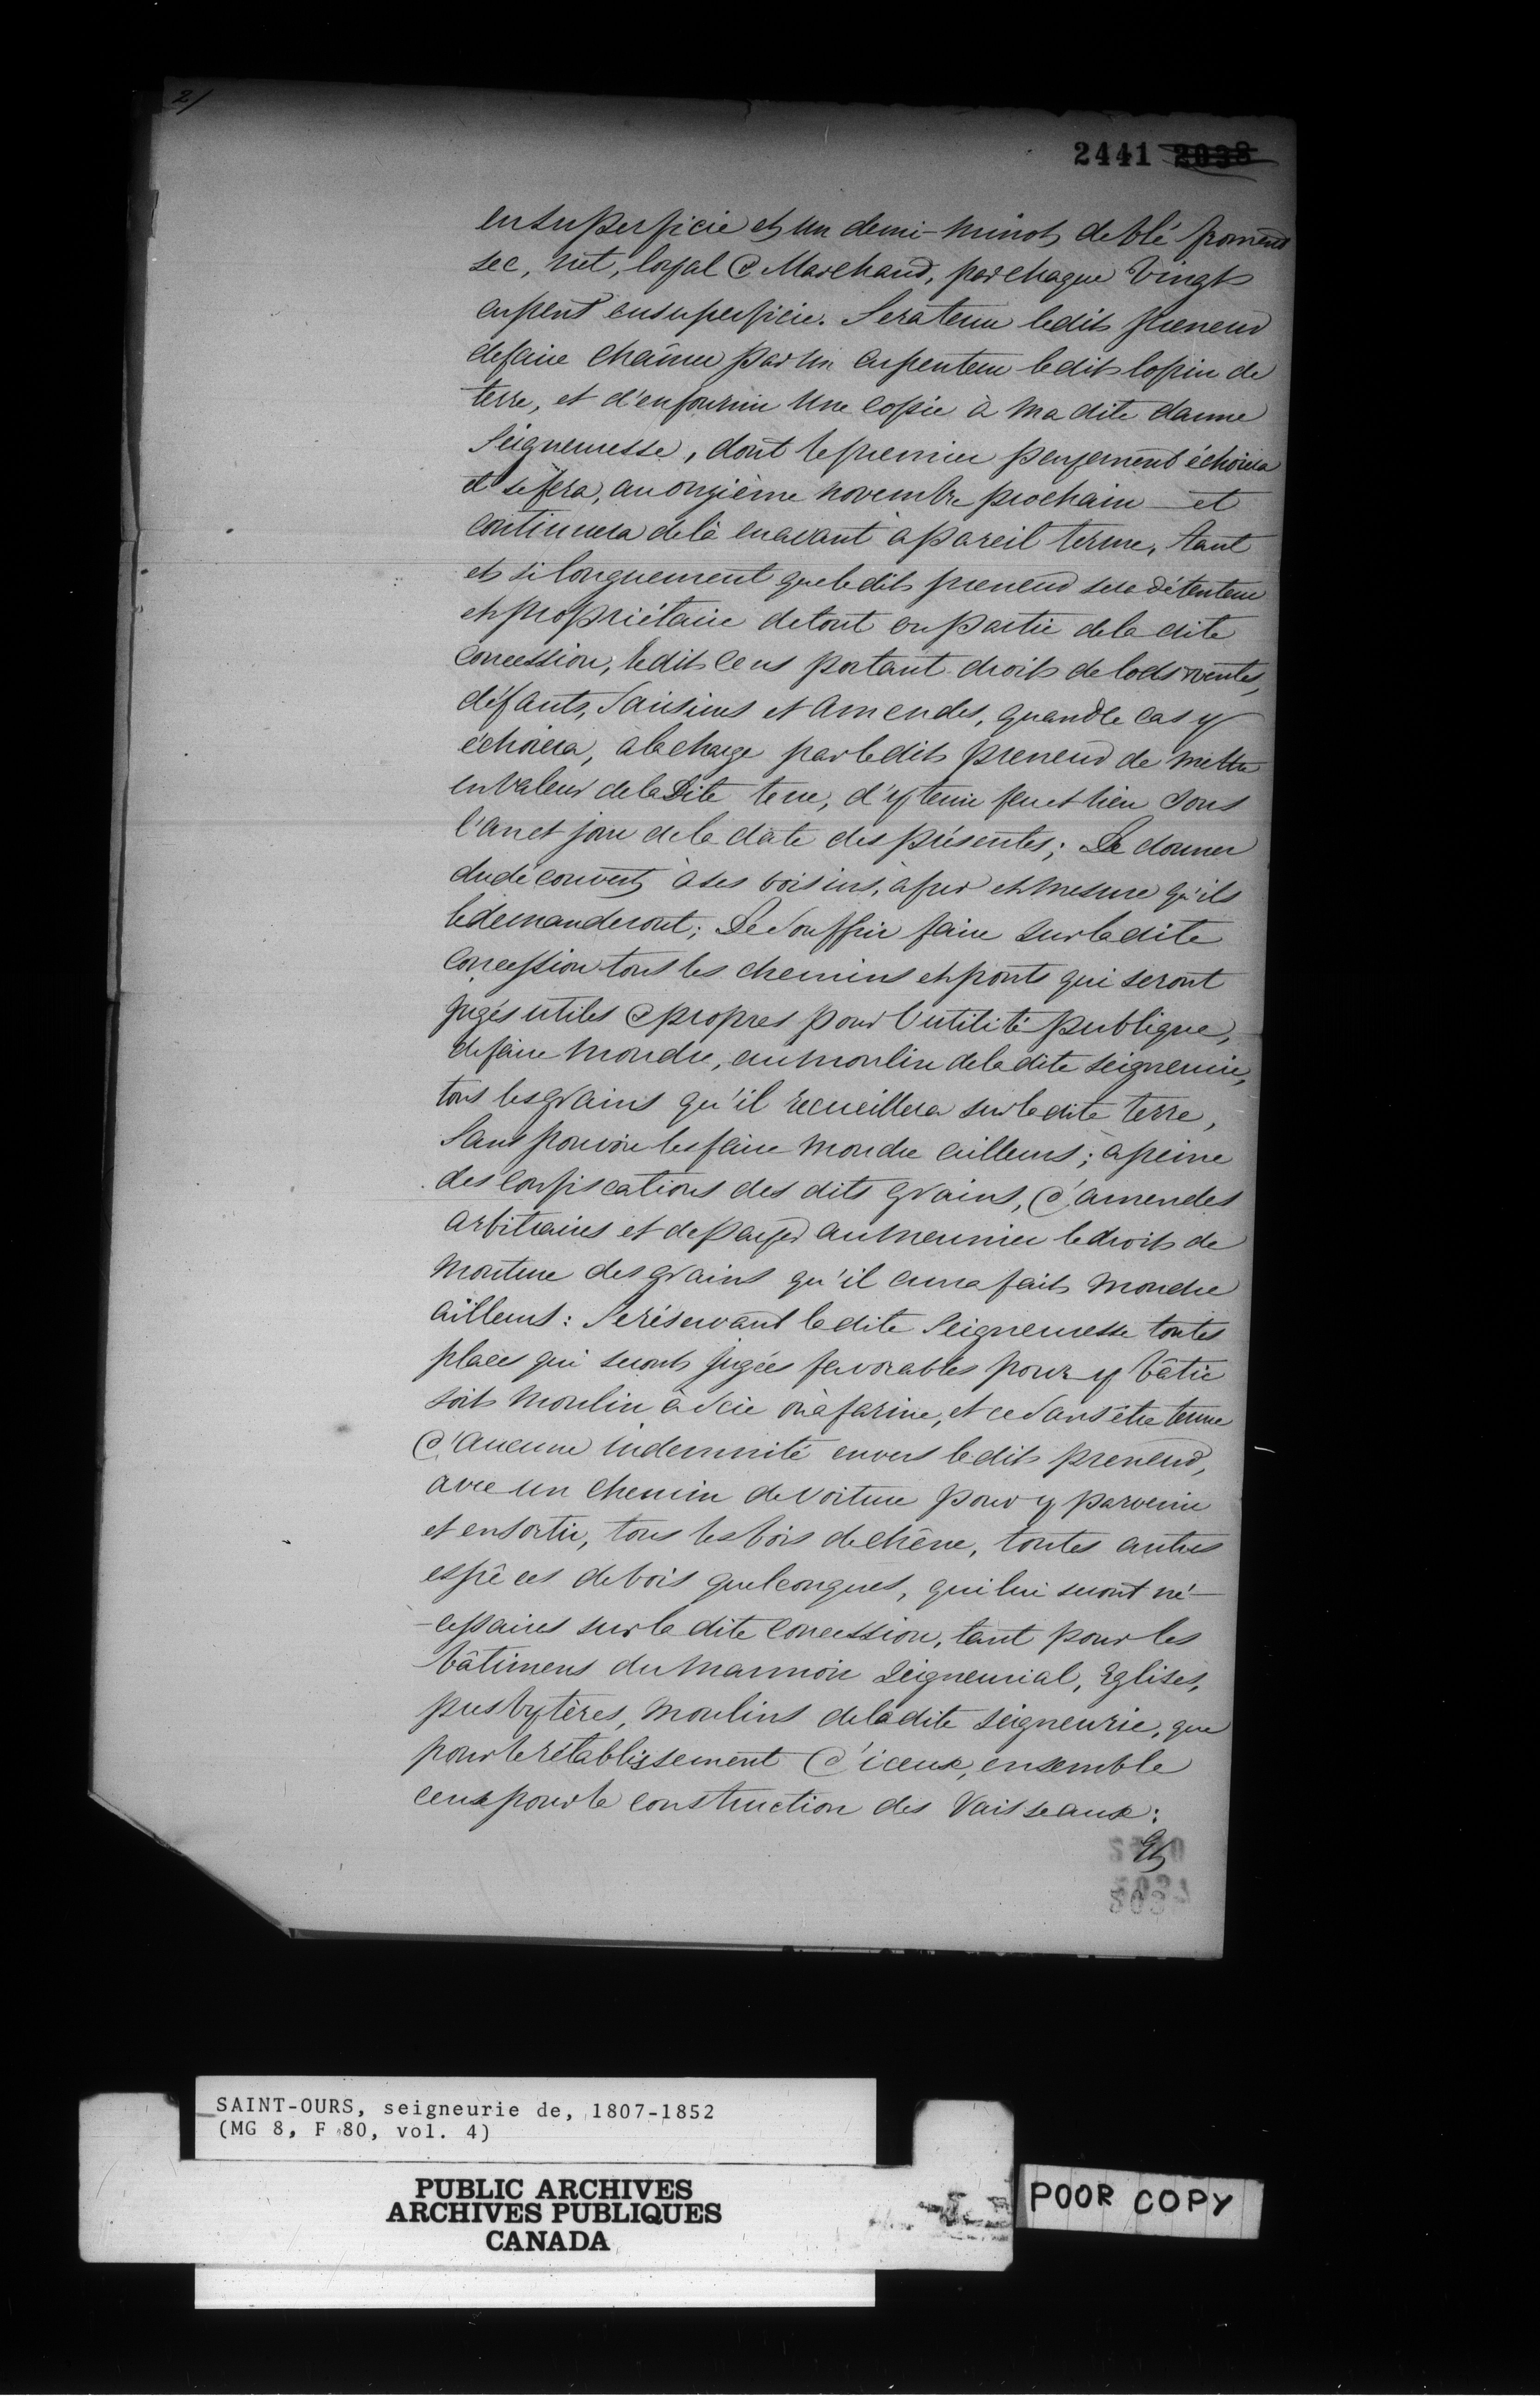 2/
2441 2038
en superficie et un demi-minot de blé froment
sec, net, loyal & Marchand, par chaque Vingt
arpent en superficie. Sera tenu ledit preneur
de faire chaîner par un arpenteur ledit lopin de
terre, et d'en fournir une copie à ma dite dame
Seigneuresse, dont le premier payement échoiera
et se fera, au onzième novembre prochain et
continuera de là en avant à pareil terme, tant
et si longuement que ledit preneur sera détenteur
et propriétaire de tout ou partie de la dite
concession, ledit Cens portant droits de lods & ventes,
défauts, Saisines et Amendes, quand le cas y
échoiera, à la charge par ledit preneur de mettre
en valeur de la Dite terre, d'y tenir feu et lieu dans
l'an et jour de la date des présentes; De donner
du découvert à ses voisins, à fur et mesure qu'ils
le demanderont; De Souffrir faire sur la dite
Concession tous les chemins et ponts qui seront
jugés utiles & propres pour l'utilité publique,
de faire moudre, au moulin de la dite seigneurie,
tous les grains qu'il recueillera sur la dite terre,
Sans pouvoir les faire moudre ailleurs; à peine
des confiscations des dits grains, d'amendes
arbitraires et de payer au meunier le droit de
mouture des grains qu'il aura fait moudre
ailleurs: Se réservant la dite Seigneuresse toutes
places qui seront jugées favorables pour y bâtir
soit moulin à Scie ou à farine, et ce Sans être tenue
d'aucune indemnité envers ledit preneur,
avec un chemin de voiture pour y parvenir
et en sortir, tous les bois de chêne, toutes autres
espèces de bois quelconques, qui lui seront né-
-cessaires sur la dite concession, tant pour les
bâtimens du mannoir Seigneurial, Eglises,
presbytères, moulins de la dite seigneurie, que
pour le rétablissement d'iceux, ensemble
ceux pour la construction des Vaisseaux:
Et
SAINT-OURS, seigneurie de, 1807-1852
(MG 8, F 80, vol. 4)
PUBLIC ARCHIVES
ARCHIVES PUBLIQUES
CANADA
POOR COPY